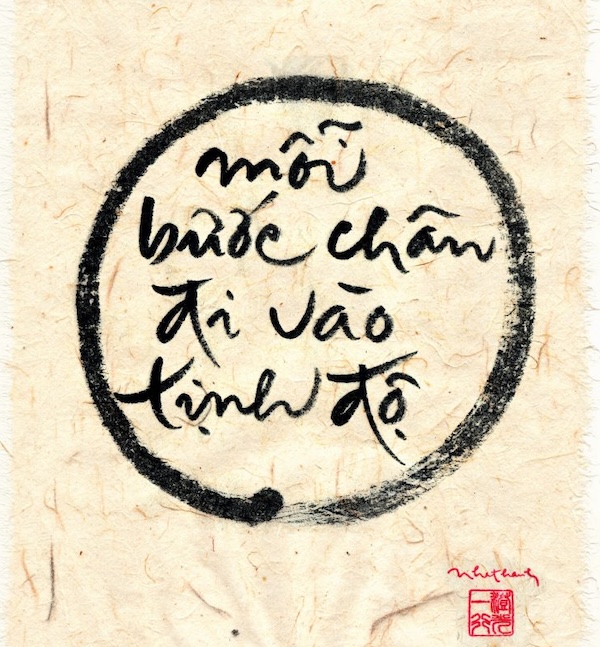 mỗi
bước chân
đi vào
tịnh độ
nhathanh
澄光
一行